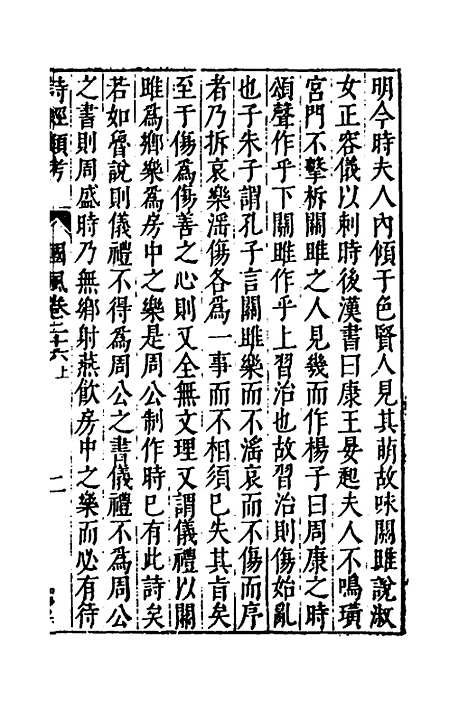 明今時夫人內傾于色賢人見其萌故咏關雎說淑
女正容儀以刺時後漢書曰康王晏起夫人不鳴璜
宮門不擊柝關雎之人見幾而作楊子曰周康之時
頌聲作乎下關雎作乎上習治也故習治則傷始亂
也子朱子謂孔子言關雎樂而不滛哀而不傷而序
者乃拆哀樂滛傷各爲一事而不相須已失其旨矣
至于傷爲傷善之心則又全無文理又謂儀禮以關
雎爲鄉樂爲房中之樂是周公制作時已有此詩矣
若如魯說則儀禮不得爲周公之書儀禮不爲周公
之書則周盛時乃無鄉射燕飲房中之樂而必有待
詩經類考 國風卷二十六上 二